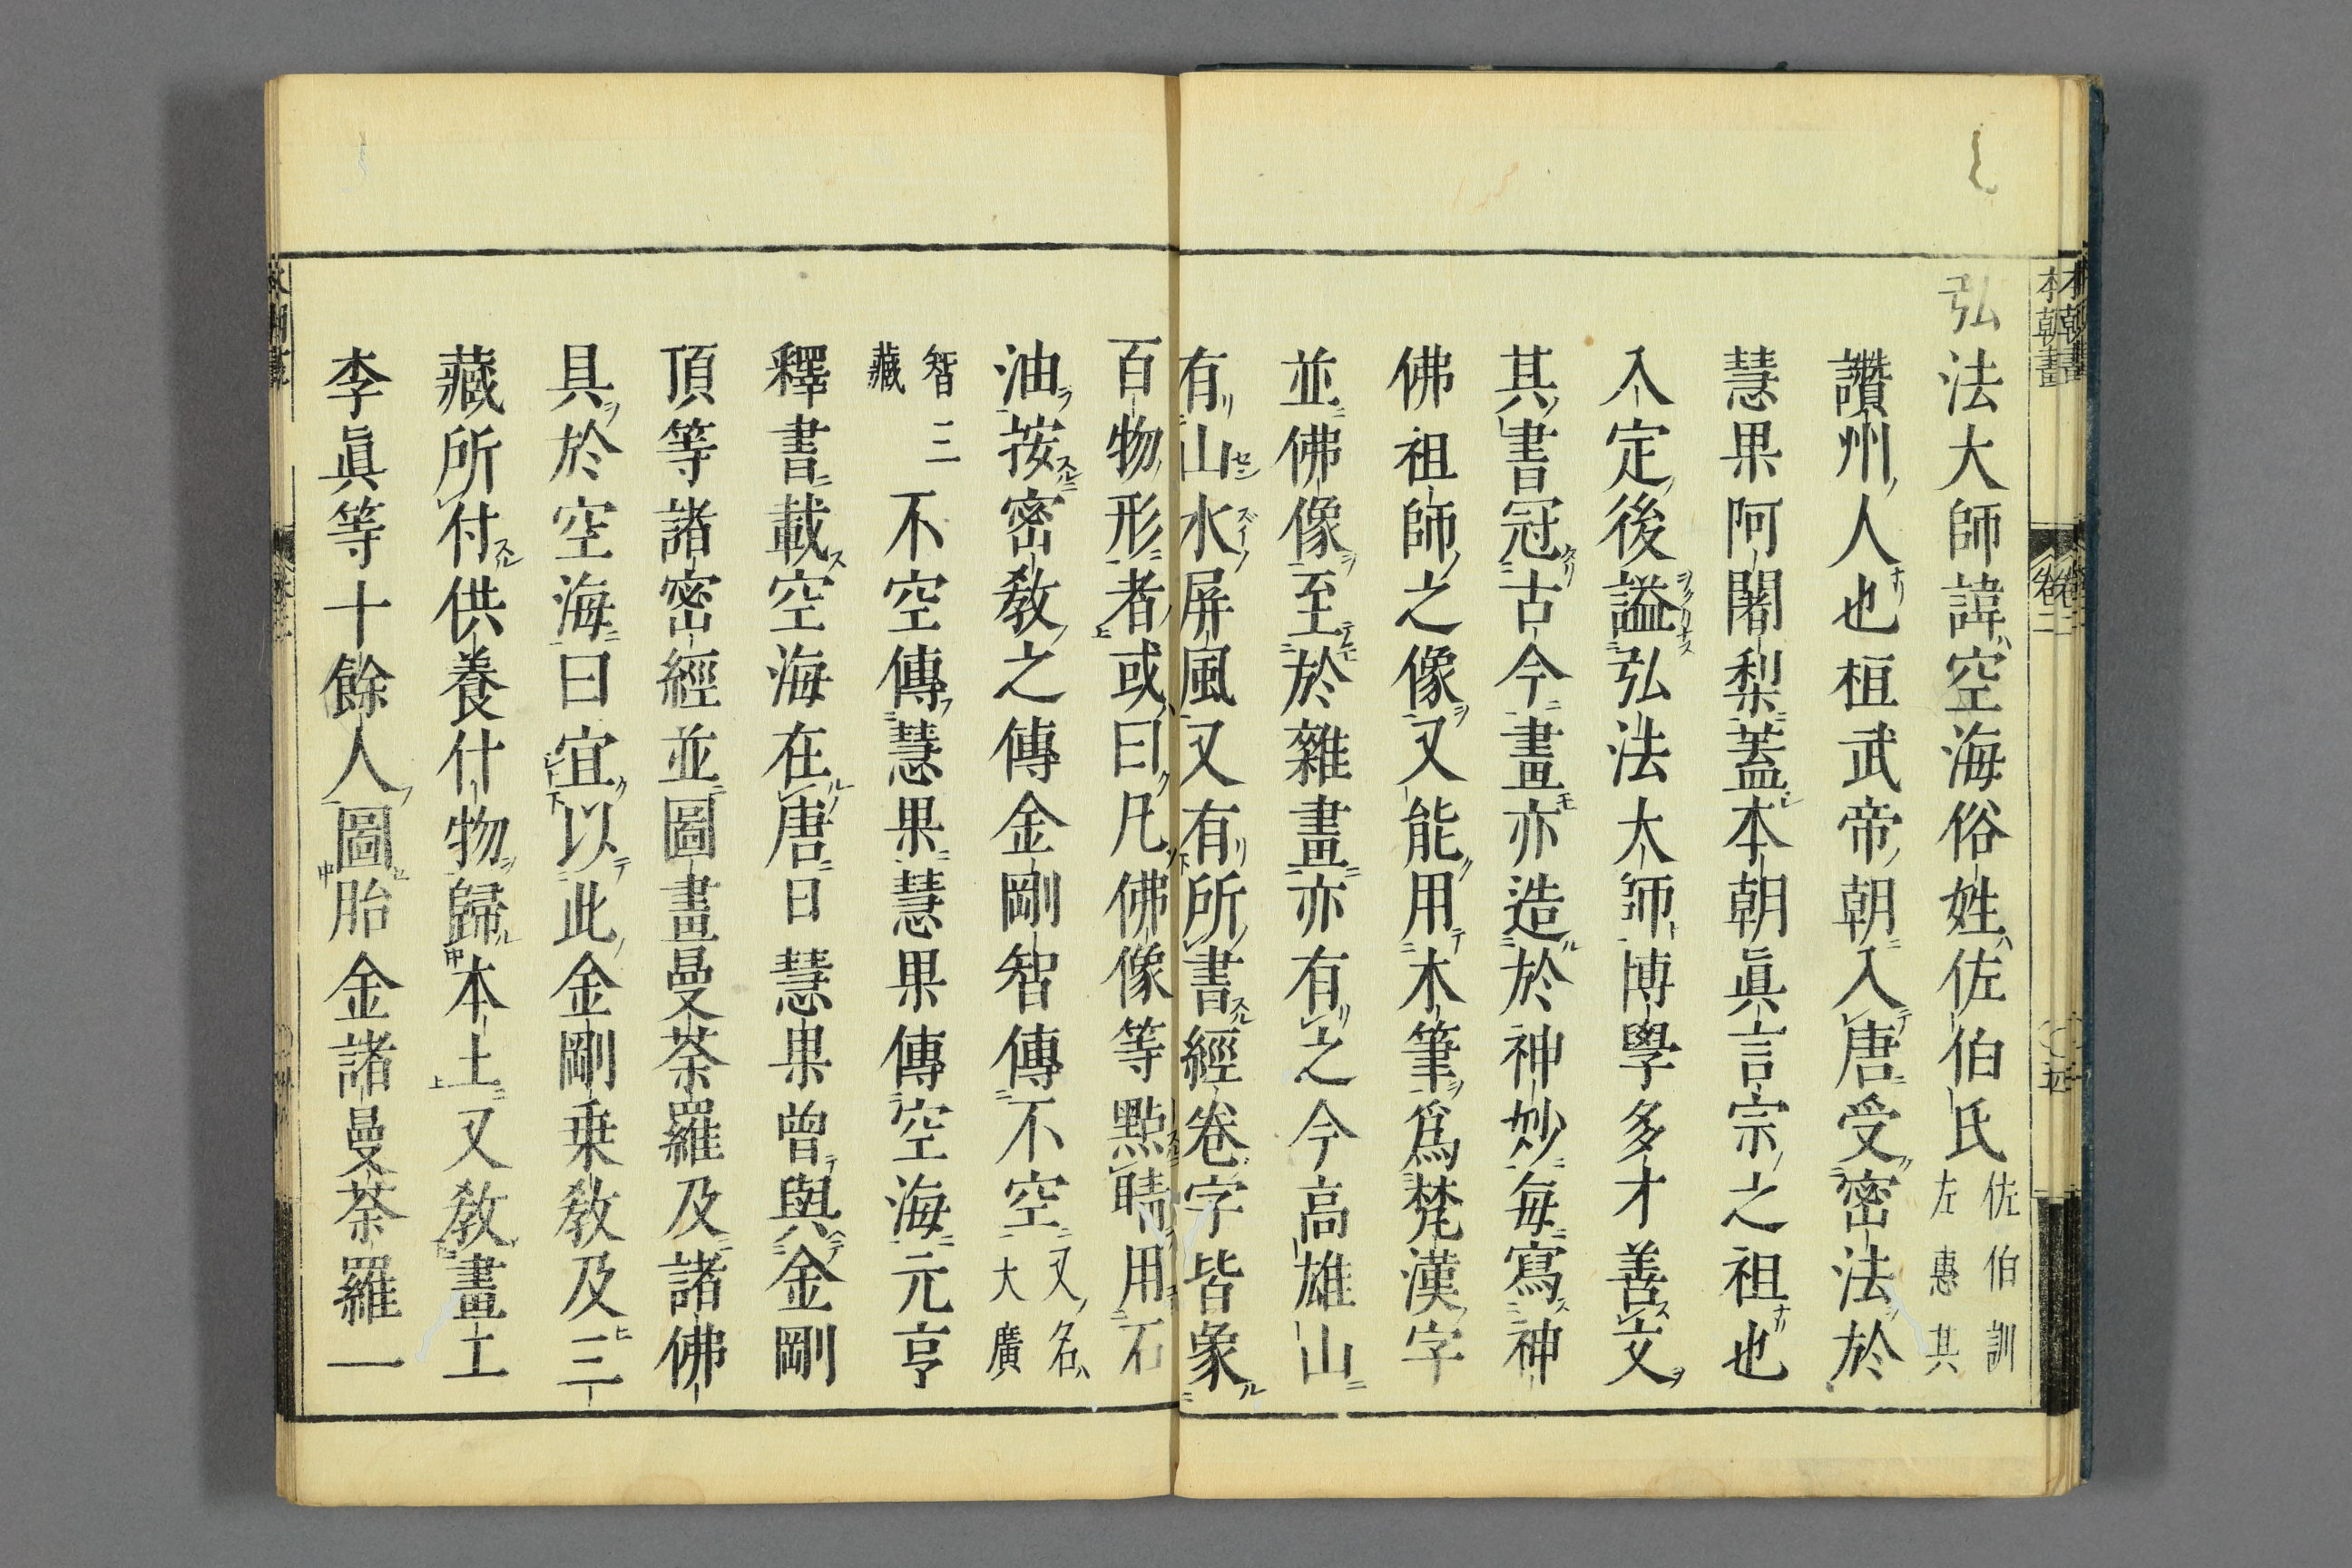 本朝畫
卷二
弘法大師諱空海俗姓佐伯氏佐伯訓左惠其
讚州人也桓武帝朝入唐受密法於
慧果阿闍梨蓋本朝眞言宗之祖也
入定後謚弘法大師博學多才善文
其書冠古今畫亦造於神妙每寫神
佛祖師之像又能用木筆爲梵漢字
並佛像至於雜畫亦有之今高雄山
有山水屏風又有所書經卷字皆象
百物形者或曰凡佛像等點睛用石
油按密敎之傳金剛智傳不空又名大廣
智三藏不空傳慧果慧果傳空海元亨
釋書載空海在唐日慧果曾與金剛
頂等諸密經並圖畫曼荼羅及諸佛
具於空海曰宜以此金剛乗敎及三
藏所付供養什物歸本土又敎畫工
李眞等十餘人圖胎金諸曼荼羅一